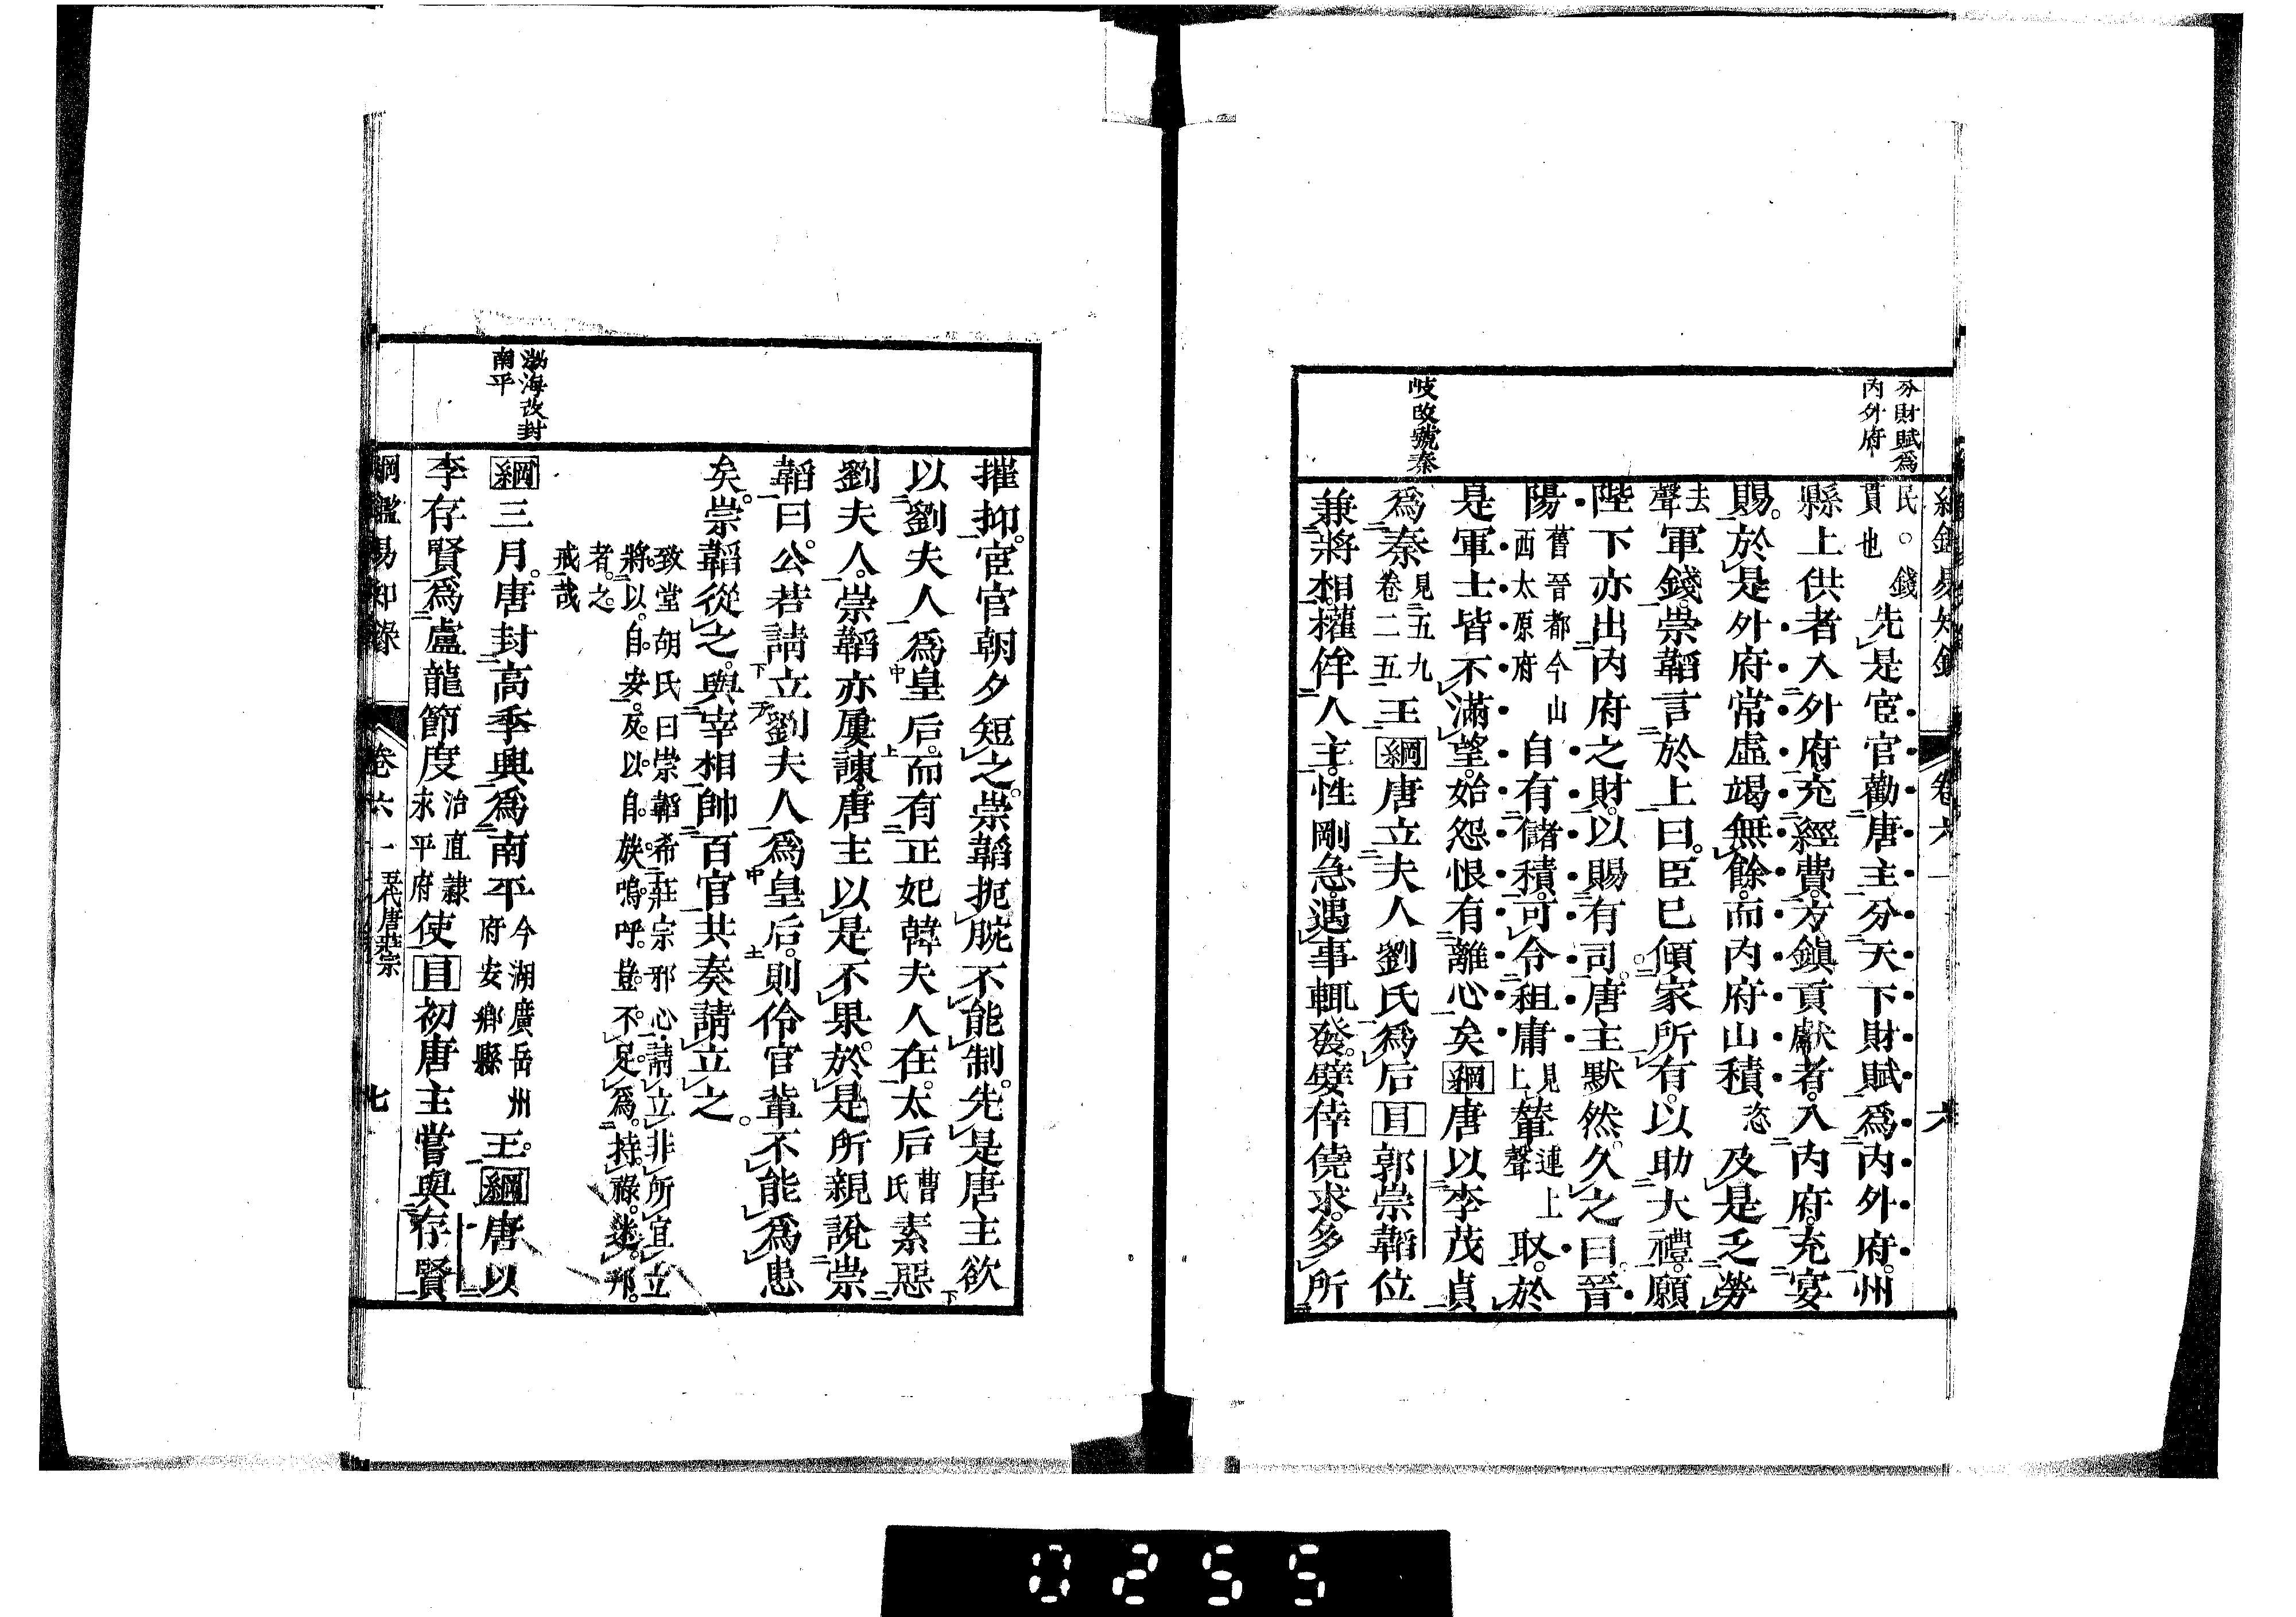 分財賦爲
内外府
岐改號秦
民。錢
貫也
先是宦官勸唐主分天下財賦爲内外府。州
縣上供者入外府。充經費。方鎭貢獻者。入内府。充宴
賜。於是外府常虚竭無餘。而内府山積
恣
及是乏勞
去
聲
軍錢。崇韜言於上曰。臣已傾家所有。以助大禮。願
陛下亦出内府之財。以賜有司。唐主默然。久之曰。晉
陽
舊晉都今山
西太原府
自有儲積。可令租庸
見
上
輦
連上
聲
取。於
是軍士皆不滿望。始怨恨有離心矣綱唐以李茂貞
爲秦
見五九
卷二五
王綱唐立夫人劉氏爲后目郭崇韜位
兼將相。權侔人主。性剛急。遇事輒發。嬖倖僥求。多所
渤海改封
南平
摧抑。宦官朝夕短之。崇韜扼腕不能制。先是唐主欲
以劉夫人爲皇后。而有正妃韓夫人在。太后
曹
氏
素惡
劉夫人。崇韜亦屢諫。唐主以是不果。於是所親說崇
韜曰。公若請立劉夫人爲皇后。則伶官輩不能爲患
矣。崇韜從之。與宰相帥百官共奏請立之。
致堂胡氏曰崇韜希莊宗邪心請立非所宜立
將。以。自。安。反。以。自。族。嗚呼。豈。不。足。爲。持。祿。迷。邦。
者。之。
戒哉
綱三月。唐封高季興爲南平
今湖廣岳州
府安鄉縣
王。綱唐以
李存賢爲盧龍節度
治直隸
永平府
使目初唐主嘗與存賢
綱鑑易知錄
卷六一
五代唐莊宗
七
0255